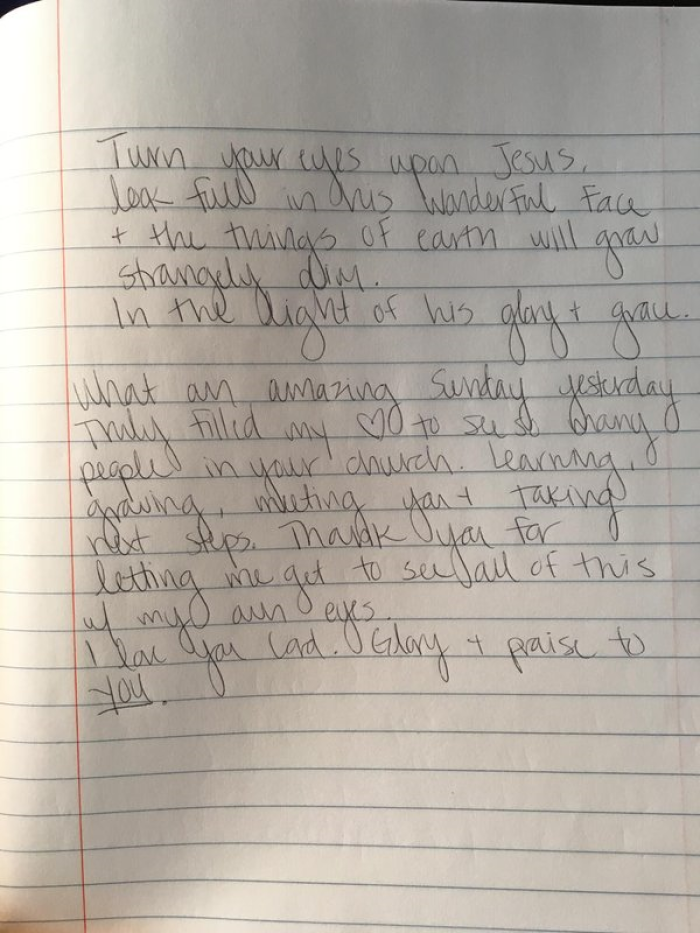 Turn your eyes upon Jesus,
look full in his wonderful face
+ the things of earth will grow
strangely dim.
In the light of his glory + grace.
What an amazing Sunday yesterday
Truly filled my ♡ to see so many
people in your church. Learning,
growing, meeting you + taking
next steps. Thank you for
letting me get to see all of this
w/ my own eyes.
I love you Lord. Glory + praise to
you.